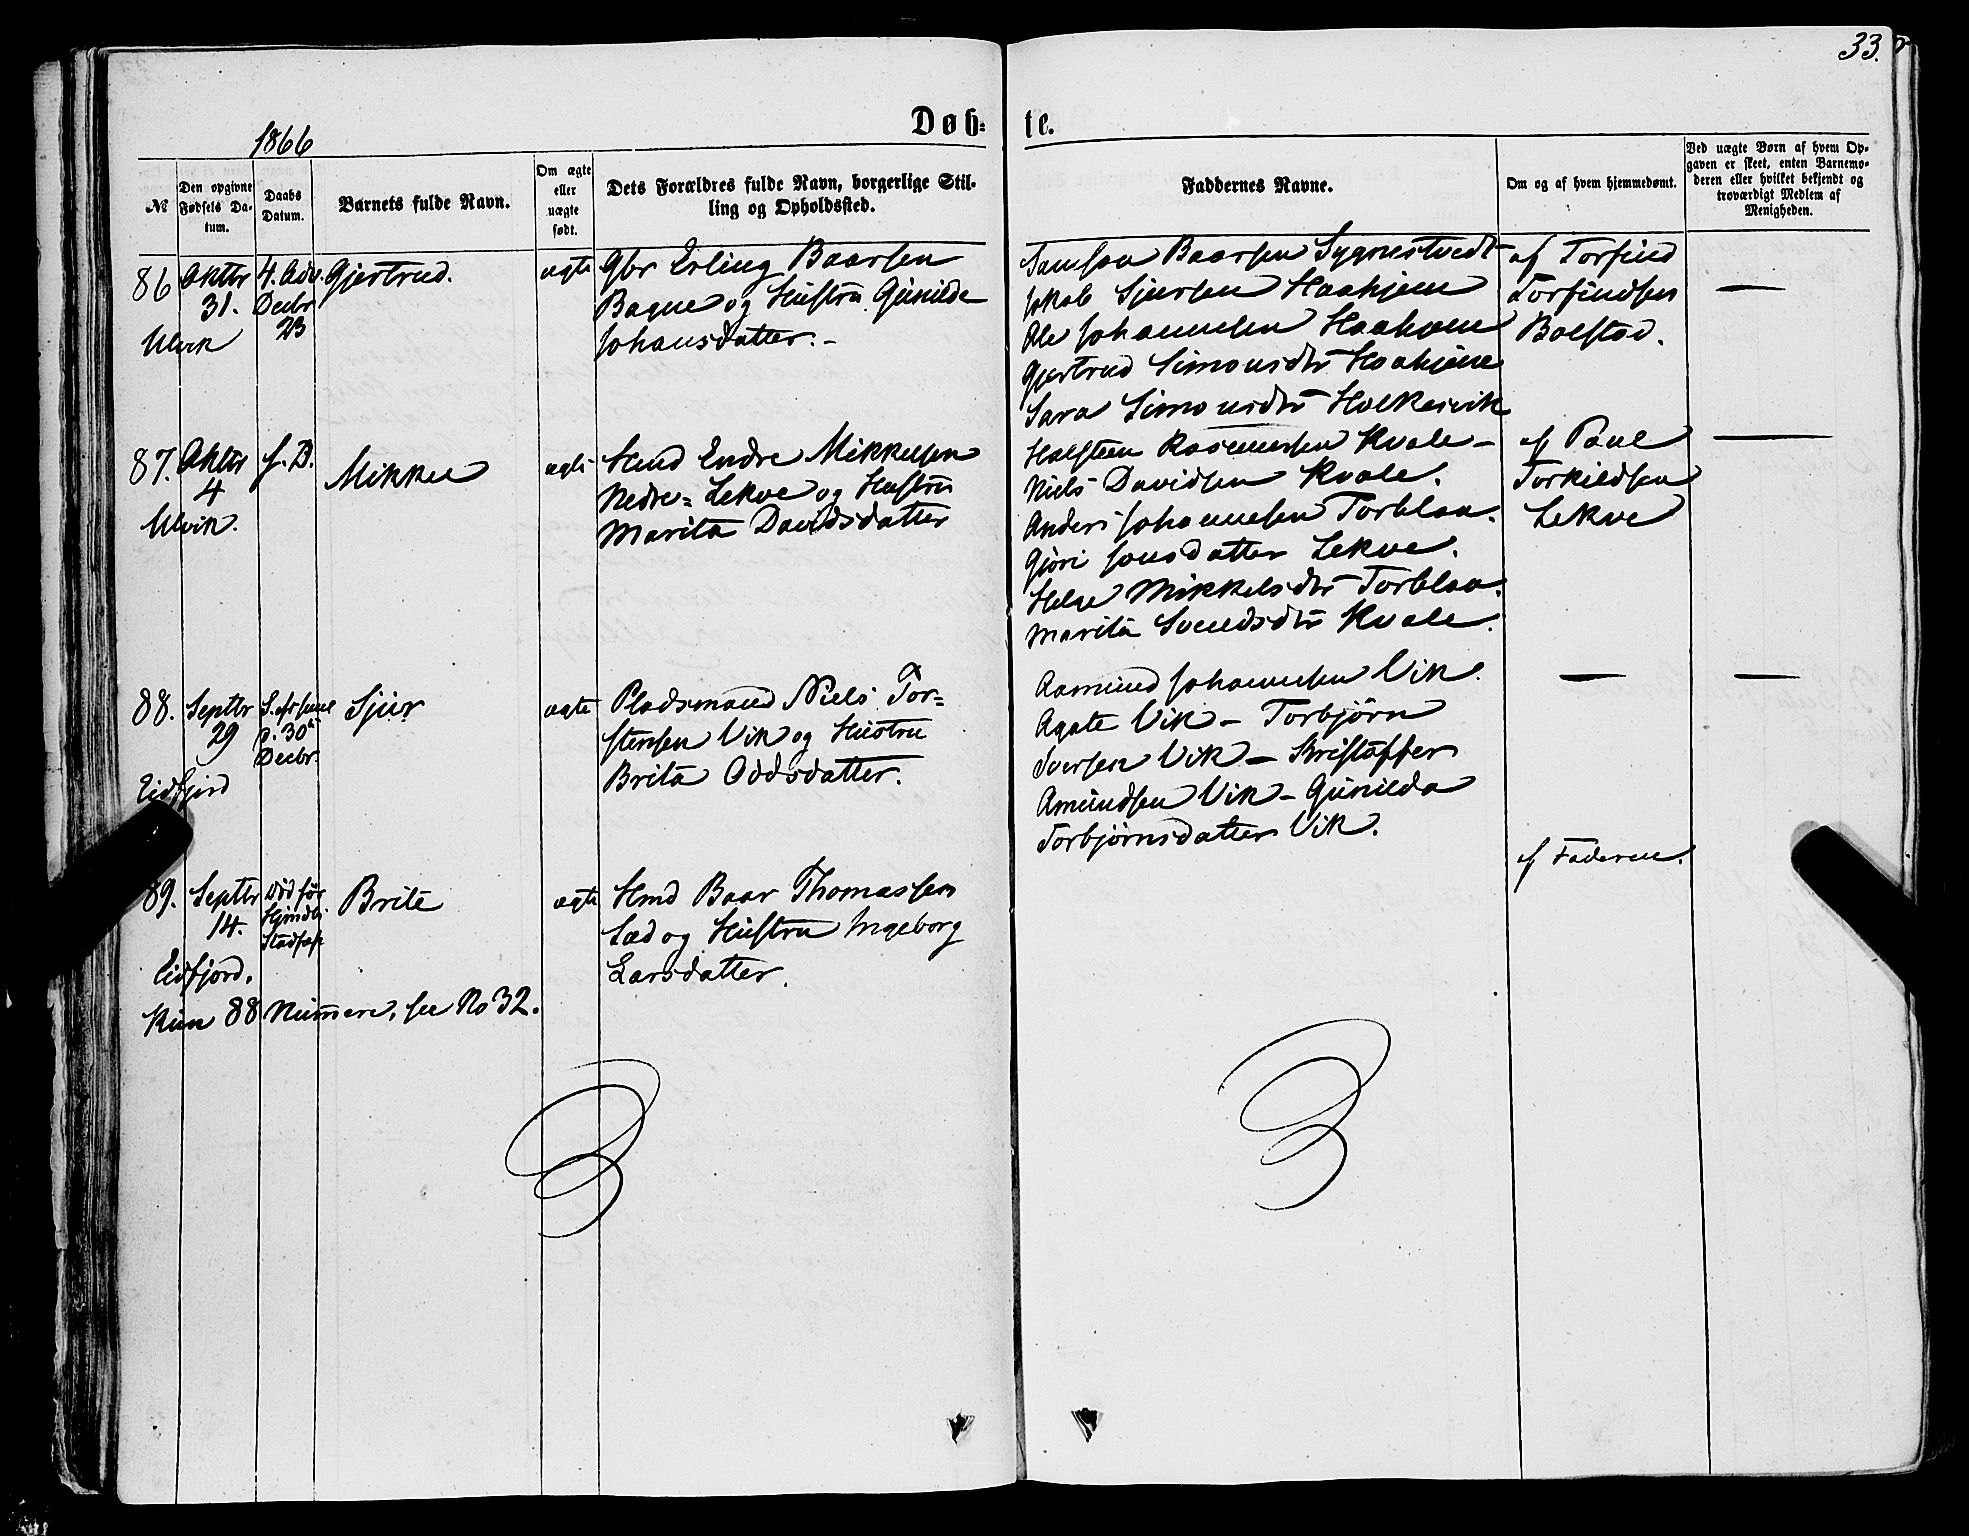 33.
Døb-
te.
1866
No
Den opgivne Fødsels Da-
tum.
Daabs
Datum.
Barnets fulde Navn.
Om ægte
eller
uægte
født.
Dets Forældres fulde Navn, borgerlige Stil-
ling og Opholdssted.
Faddernes Navne.
Om og af hvem hjemmedøbt.
Ved uægte Børn af hvem Op-
gaven er skeet, enten Barnemo-
deren eller hvilket bekjendt og
troværdigt Medlem af
Menigheden.
86
Oktbr
31.
Ulvik
4. Adv.
Decbr
23
Gjertrud.
ægte
Gbr Erling Baarsen
Bagne og Hustru Gunilde
Johansdatter. -
Samson Baarsen Sygnestvedt
Jakob Sjursen Haahjem
Ole Johannesen Haahjem
Gjertrud Simonsdtr Haahjem
Sara Simonsdtr Holkesvik
af Torfind
Torfindsen
Bolstad.
—
87.
Oktbr
4
Ulvik.
s. D.
Mikkel
ægte
Hmd Endre Mikkelsen
Nedre- Lekve og Hustru
Marita Davidsdatter
Halsteen Rasmussen Kvale -
Niels Davidsen Kvale.
Anders Johannesen Torblaa.
Gjøri Jonsdatter Lekve.
Helge Mikkelsdtr Torblaa.
Marita Svendsdtr Kvale.
af Paul
Torkildsen
Lekve
—
88.
Septbr
29
Eidfjord
S. efr Juul
d. 30te
Decbr.
Sjur
ægte
Pladsmand Niels Tor-
stensen Vik og Hustru
Brita Oddsdatter.
Aamund Johannesen Vik.
Agate Vik - Torbjørn
Iversen Vik - Kristoffer
Amundsen Vik - Gunilda
Torbjørnsdatter Vik.
—
—
89.
Septbr
14.
Eidfjord.
Død før
Stadfæst
Brite
ægte
Hmd Baar Thomassen
Sæd og Hustru Ingeborg
Larsdatter.
af Faderen.
Kun 88 Numere, see No 32.